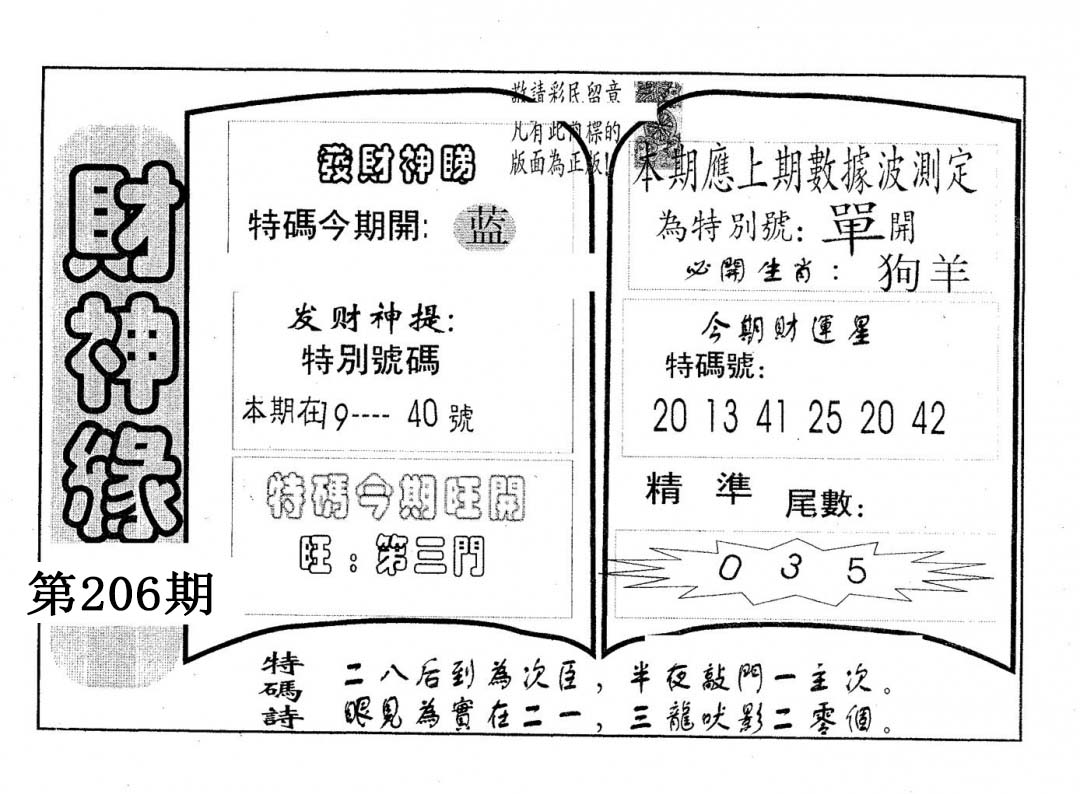 財神緣
第206期
敬請彩民留意
凡有此內標的
版面為正版!
發財神睇
特碼今期開: 蓝
发财神提:
特別號碼
本期在19---- 40號
特碼今期旺開
旺:第三門
本期應上期數據波測定
為特別號: 單開
必開生肖: 狗羊
今期財運星
特碼號:
20 13 41 25 20 42
精準 尾數:
0 3 5
特碼詩
二八后到為次臣，半夜敲門一主次。
眼見為實在二一，三龍吠影二零個。